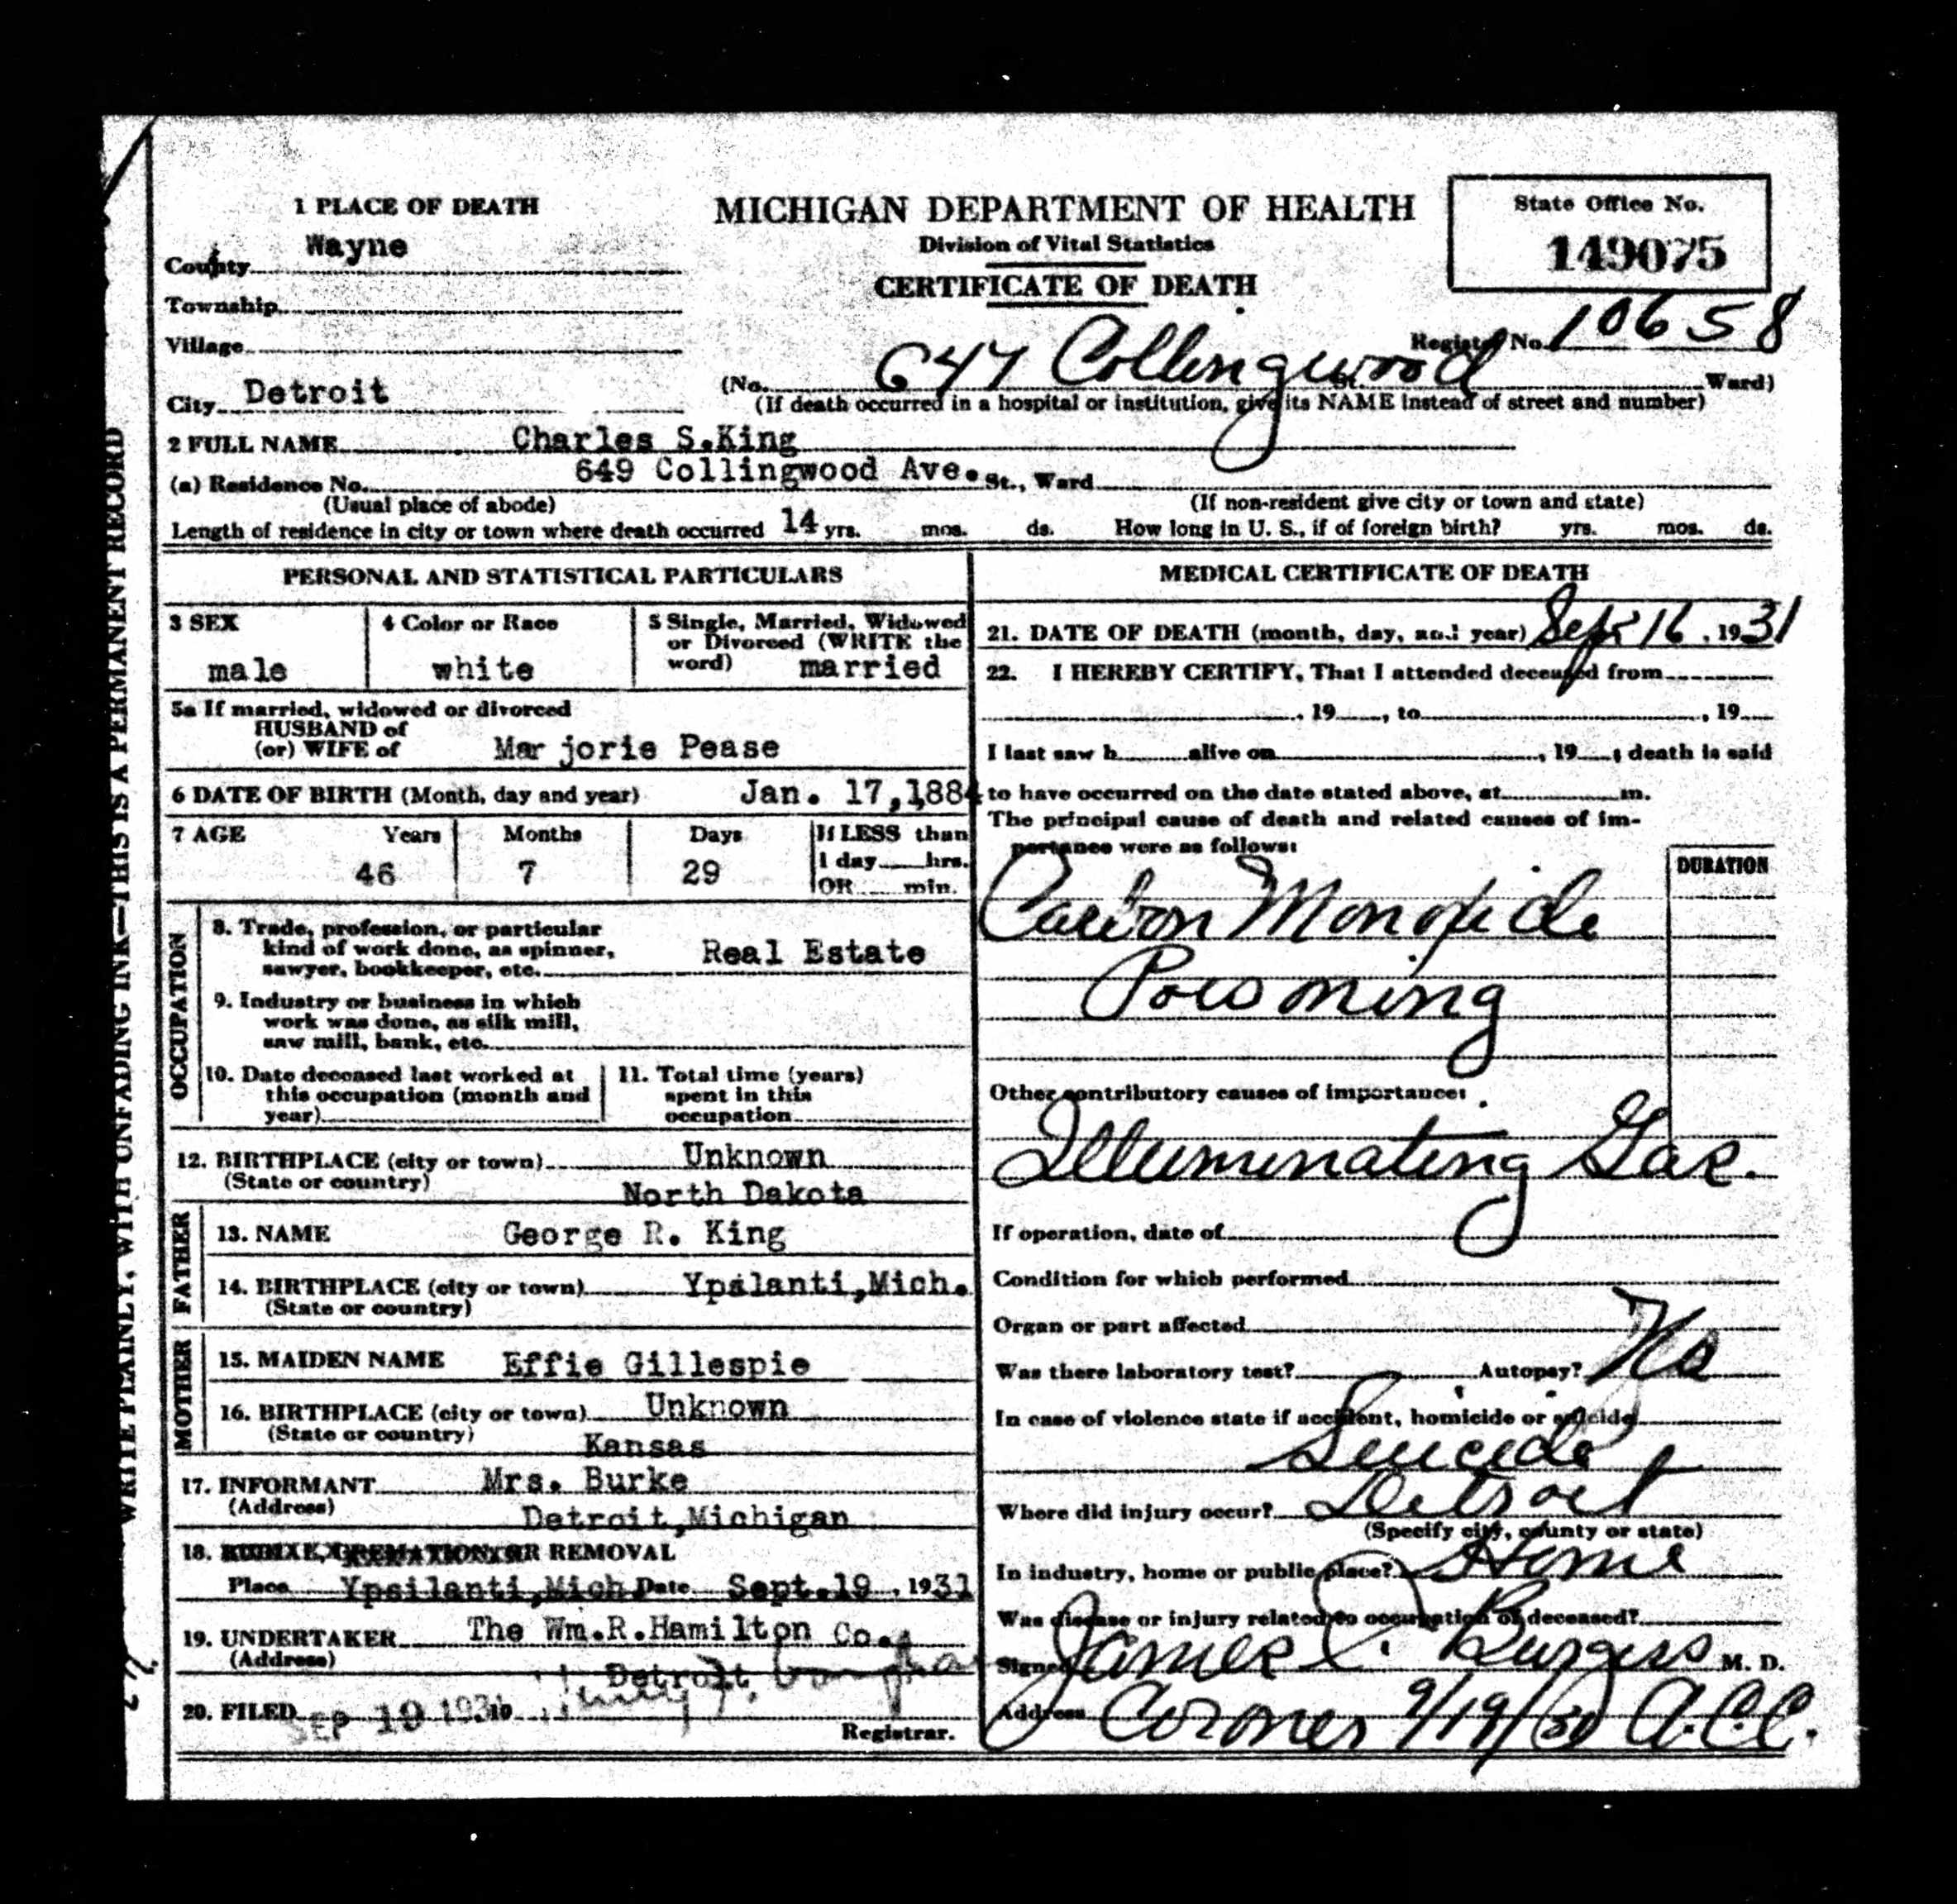 WRITE PLAINLY, WITH UNFADING INK—THIS IS A PERMANENT RECORD
1 PLACE OF DEATH
County Wayne
Township
Village
City Detroit
MICHIGAN DEPARTMENT OF HEALTH
Division of Vital Statistics
CERTIFICATE OF DEATH
State Office No.
149075
Register No. 10658
(No. 647 Collingwood St. Ward)
(If death occurred in a hospital or institution, give its NAME instead of street and number)
2 FULL NAME Charles S.King
(a) Residence No. 649 Collingwood Ave. St., Ward
(Usual place of abode) (If non-resident give city or town and state)
Length of residence in city or town where death occurred 14 yrs. mos. ds. How long in U. S., if of foreign birth? yrs. mos. ds.
PERSONAL AND STATISTICAL PARTICULARS
3 SEX
male
4 Color or Race
white
5 Single, Married, Widowed
or Divorced (WRITE the
word) married
5a If married, widowed or divorced
HUSBAND of
(or) WIFE of Mar jorie Pease
6 DATE OF BIRTH (Month, day and year) Jan. 17,1884
7 AGE Years Months Days If LESS than
1 day hrs.
46 7 29
OR min.
OCCUPATION
8. Trade, profession, or particular
kind of work done, as spinner, Real Estate
sawyer, bookkeeper, etc.
9. Industry or business in which
work was done, as silk mill,
saw mill, bank, etc.
10. Date deceased last worked at
this occupation (month and
year)
11. Total time (years)
spent in this
occupation
12. BIRTHPLACE (city or town) Unknown
(State or country) North Dakota
FATHER
13. NAME George R. King
14. BIRTHPLACE (city or town) Ypsilanti,Mich.
(State or country)
MOTHER
15. MAIDEN NAME Effie Gillespie
16. BIRTHPLACE (city or town) Unknown
(State or country) Kansas
17. INFORMANT Mrs. Burke
(Address) Detroit,Michigan
18. BURIAL, CREMATION OR REMOVAL
Place Ypsilanti,Mich. Date Sept.19, 1931
19. UNDERTAKER The Wm.R.Hamilton Co.
(Address) Detroit
20. FILED SEP 19 1931 19
Registrar.
MEDICAL CERTIFICATE OF DEATH
21. DATE OF DEATH (month, day, and year) Sept 16, 1931
22. I HEREBY CERTIFY, That I attended deceased from
, 19 , to , 19
I last saw h alive on , 19 ; death is said
to have occurred on the date stated above, at m.
The principal cause of death and related causes of im-
portance were as follows:
DURATION
Carbon Monoxide
Poisoning
Other contributory causes of importance:
Illuminating Gas.
If operation, date of
Condition for which performed
Organ or part affected
Was there laboratory test? Autopsy? No
In case of violence state if accident, homicide or suicide
Suicide
Where did injury occur? Detroit
(Specify city, county or state)
In industry, home or public place? Home
Was disease or injury related to occupation of deceased?
Signed James Burgess M. D.
Address Coroner 9/19/30 A.C.C.